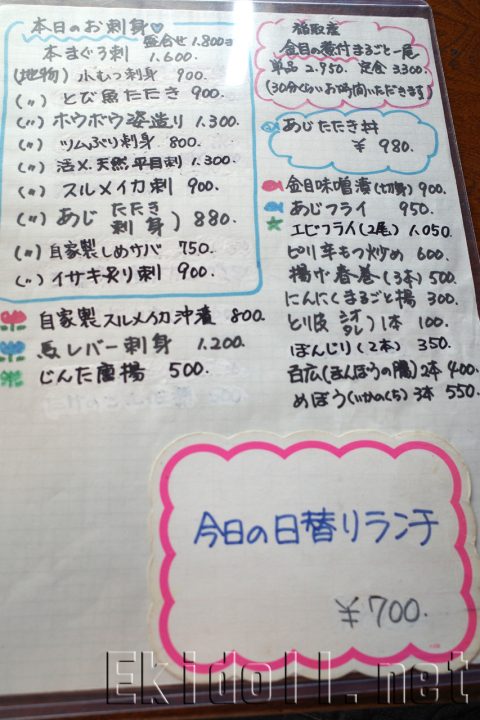 本日のお刺身♡
盛合せ 1.800ヨ
本まぐろ刺 1.600.
(地物) 小むつ刺身 900.
(〃) とび魚たたき 900.
(〃) ホウボウ姿造り 1.300.
(〃) ツムぶり刺身 800.
(〃) 活〆天然平目刺 1.300.
(〃) スルメイカ刺 900.
(〃) あじ たたき 刺身) 880.
(〃) 自家製しめサバ 750.
(〃) イサキ炙り刺 900.
自家製スルメイカ沖漬 800.
馬レバー刺身 1.200.
じんた唐揚 500.
稲取産
金目の煮付まるごと一尾
単品 2.950. 定食 3.300.
(30分くらいお時間いただきます)
あじたたき丼
¥980.
金目味噌漬(切身) 900.
あじフライ 950.
エビフライ(2尾) 1.050.
ピリ辛もつ炒め 600.
揚げ春巻(3本) 500.
にんにくまるごと揚 300.
とり皮 シオ タレ) 1本 100.
ぼんじり(2本) 350.
百広(まんぼうの腸) 2本 400.
めぼう(いかのくち) 3本 550.
今日の日替りランチ
¥700.
Ekidoll.net